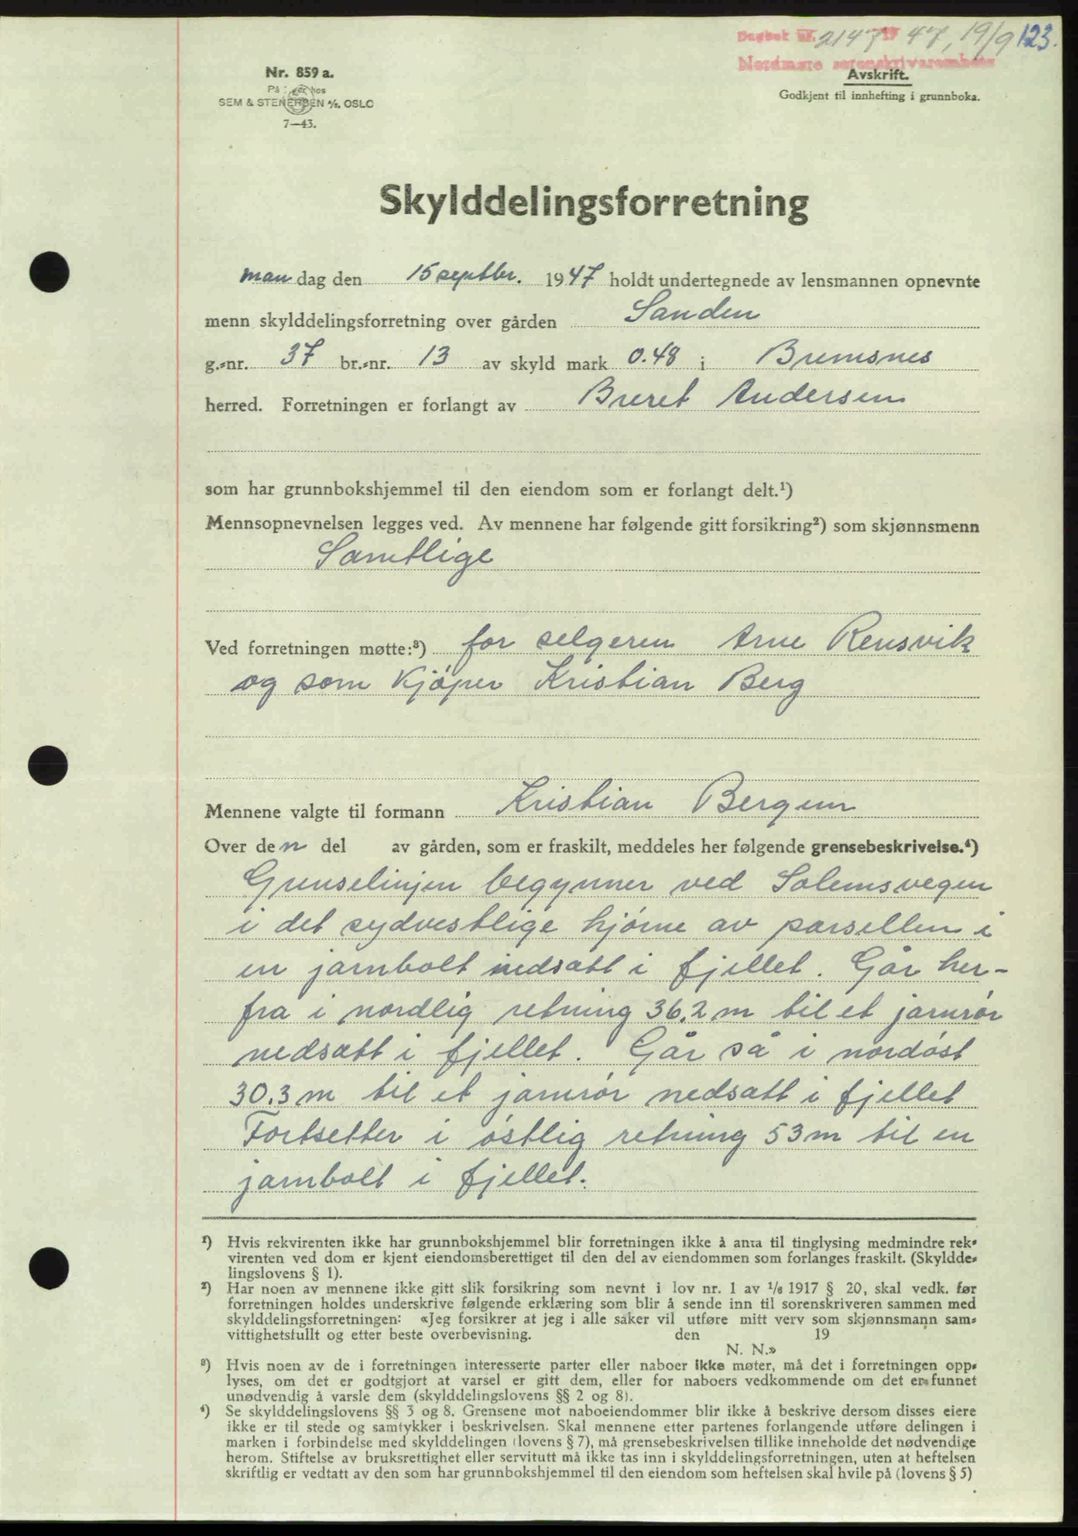 Dagbok nr. 2147 19 47, 19/9 123.
Nordmøre sorenskriverembete
Nr. 859 a.
Avskrift.
På
SEM & STENERSEN A/S. OSLO
Godkjent til innhefting i grunnboka.
7—43.
Skylddelingsforretning
man dag den 15 septbr. 1947 holdt undertegnede av lensmannen opnevnte
menn skylddelingsforretning over gården Sanden
g.-nr. 37 br.-nr. 13 av skyld mark 0.48 i Bremsnes
herred. Forretningen er forlangt av Breret Andersen
som har grunnbokshjemmel til den eiendom som er forlangt delt.¹)
Mennsopnevnelsen legges ved. Av mennene har følgende gitt forsikring²) som skjønnsmenn
Samtlige
Ved forretningen møtte:³) for selgeren Arne Rensvik
og som kjöper Kristian Berg
Mennene valgte til formann Kristian Bergem
Over den del av gården, som er fraskilt, meddeles her følgende grensebeskrivelse.⁴)
Grenselinjen begynner ved Solemsvegen
i det sydvestlige hjörne av parsellen i
en jarnbolt nedsatt i fjellet. Går her-
fra i nordlig retning 36.2 m til et jarnrör
nedsatt i fjellet. Går så i nordöst
30.3 m til et jarnrör nedsatt i fjellet
Fortsetter i östlig retning 53 m til en
jarnbolt i fjellet.
¹) Hvis rekvirenten ikke har grunnbokshjemmel blir forretningen ikke å anta til tinglysing medmindre rek-
virenten ved dom er kjent eiendomsberettiget til den del av eiendommen som forlanges fraskilt. (Skyldde-
lingslovens § 1).
²) Har noen av mennene ikke gitt slik forsikring som nevnt i lov nr. 1 av ¹/₆ 1917 § 20, skal vedk. før
forretningen holdes underskrive følgende erklæring som blir å sende inn til sorenskriveren sammen med
skylddelingsforretningen: «Jeg forsikrer at jeg i alle saker vil utføre mitt verv som skjønnsmann sam-
vittighetsfullt og etter beste overbevisning. den 19
N. N.»
³) Hvis noen av de i forretningen interesserte parter eller naboer ikke møter, må det i forretningen opp-
lyses, om det er godtgjort at varsel er gitt dem, eller for naboers vedkommende om det er funnet
unødvendig å varsle dem (skylddelingslovens §§ 2 og 8).
⁴) Se skylddelingslovens §§ 3 og 8. Grensene mot naboeiendommer blir ikke å beskrive dersom disses eiere
ikke er til stede og samtykker i beskrivelsen. Skal mennene etter partenes forlangende utføre delingen i
marken i forbindelse med skylddelingen (lovens § 7), må grensebeskrivelsen tillike inneholde det nødvendige
herom. Stiftelse av bruksrettighet eller servitutt må ikke tas inn i skylddelingsforretningen, uten at heftelsen
skriftlig er vedtatt av den som har grunnbokshjemmel til den eiendom som heftelsen skal hvile på (lovens § 5)